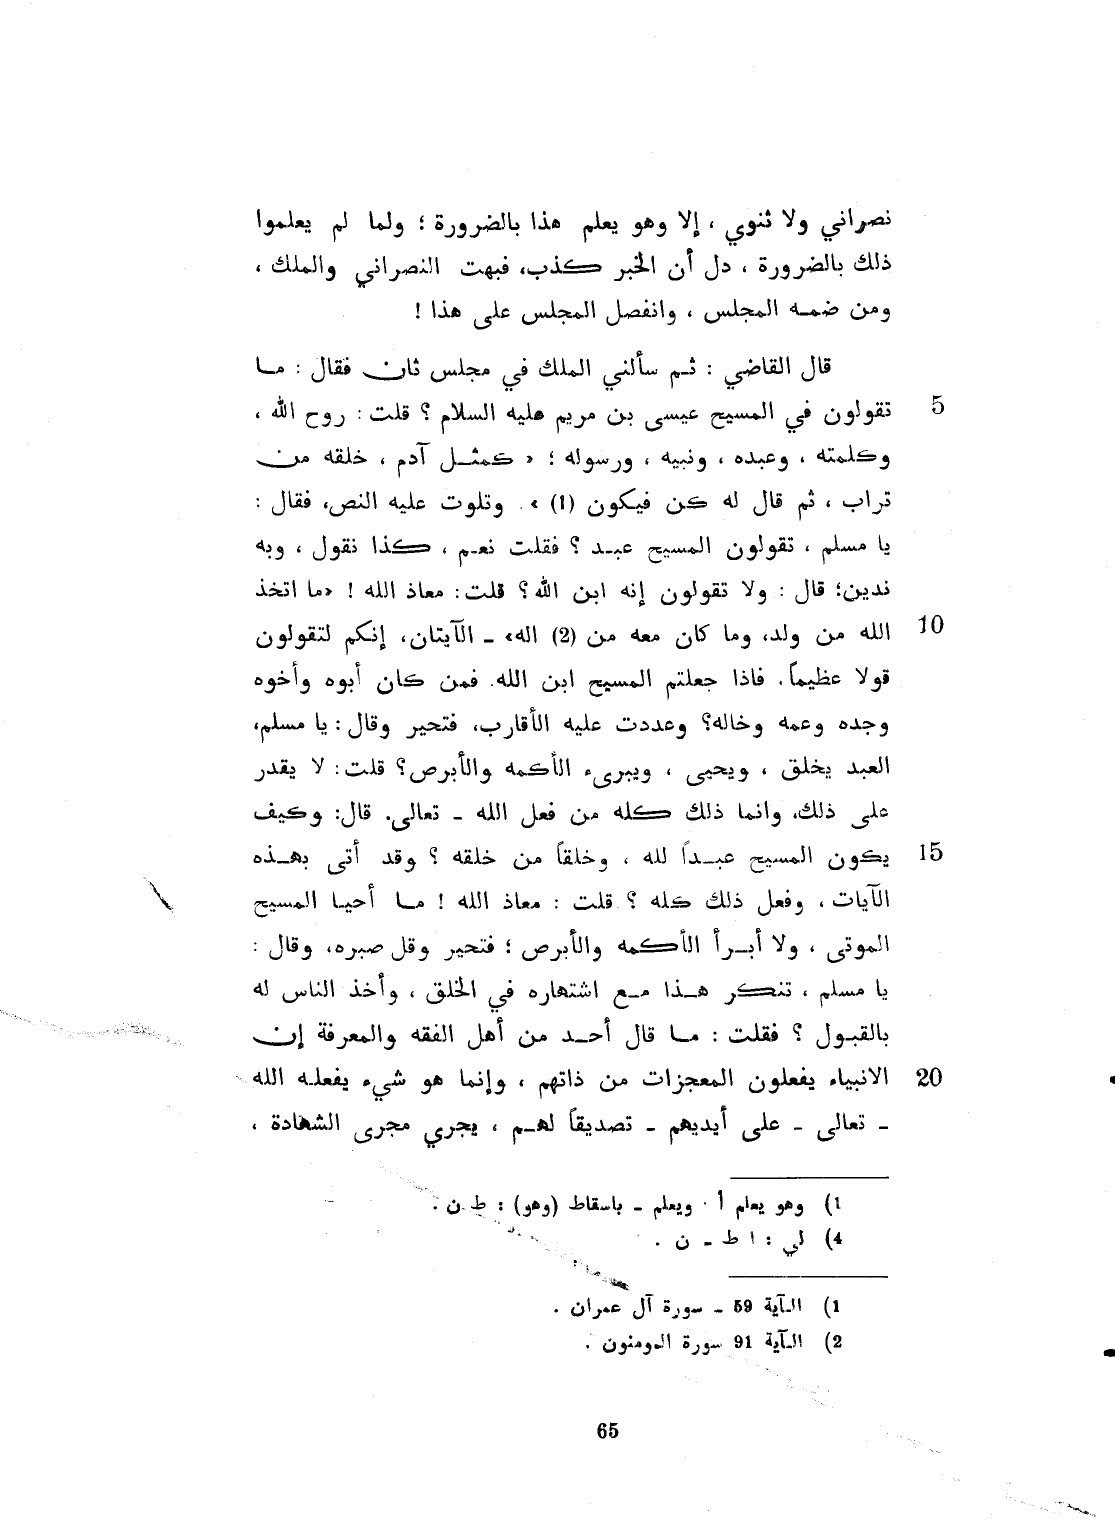 نصراني ولا ثنوي ، إلا وهو يعلم هذا بالضرورة ؛ ولما لم يعلموا
ذلك بالضرورة ، دل أن الخبر كذب، فبهت النصراني والملك ،
ومن ضمه المجلس ، وانفصل المجلس على هذا !
قال القاضي : ثم سألني الملك في مجلس ثان فقال : ما
5 تقولون في المسيح عيسى بن مريم عليه السلام ؟ قلت : روح الله ،
وكلمته ، وعبده ، ونبيه ، ورسوله ؛ « كمثل آدم ، خلقه من
تراب ، ثم قال له كن فيكون (1) » . وتلوت عليه النص، فقال :
يا مسلم ، تقولون المسيح عبد ؟ فقلت نعم ، كذا نقول ، وبه
ندين؛ قال : ولا تقولون إنه ابن الله؟ قلت: معاذ الله ! «ما اتخذ
10 الله من ولد، وما كان معه من (2) اله» ـ الآيتان، إنكم لتقولون
قولا عظيماً. فاذا جعلتم المسيح ابن الله. فمن كان أبوه وأخوه
وجده وعمه وخاله؟ وعددت عليه الأقارب، فتحير وقال: يا مسلم،
العبد يخلق ، ويحيى ، ويبرىء الأكمه والأبرص؟ قلت: لا يقدر
على ذلك، وانما ذلك كله من فعل الله ـ تعالى. قال: وكيف
15 يكون المسيح عبداً لله ، وخلقاً من خلقه ؟ وقد أتى بهذه
الآيات ، وفعل ذلك كله ؟ قلت : معاذ الله ! ما أحيا المسيح
الموتى ، ولا أبرأ الأكمه والأبرص ؛ فتحير وقل صبره، وقال :
يا مسلم ، تنكر هذا مع اشتهاره في الخلق ، وأخذ الناس له
بالقبول ؟ فقلت : ما قال أحد من أهل الفقه والمعرفة إن
20 الانبياء يفعلون المعجزات من ذاتهم ، وإنما هو شيء يفعله الله
ـ تعالى ـ على أيديهم ـ تصديقاً لهم ، يجري مجرى الشهادة ،
1) وهو يعلم أ ٠ ويعلم ـ باسقاط (وهو) : ط ن .
4) لي : ا ط ـ ن .
1) الآية 59 ـ سورة آل عمران .
2) الآية 91 سورة المومنون .
65